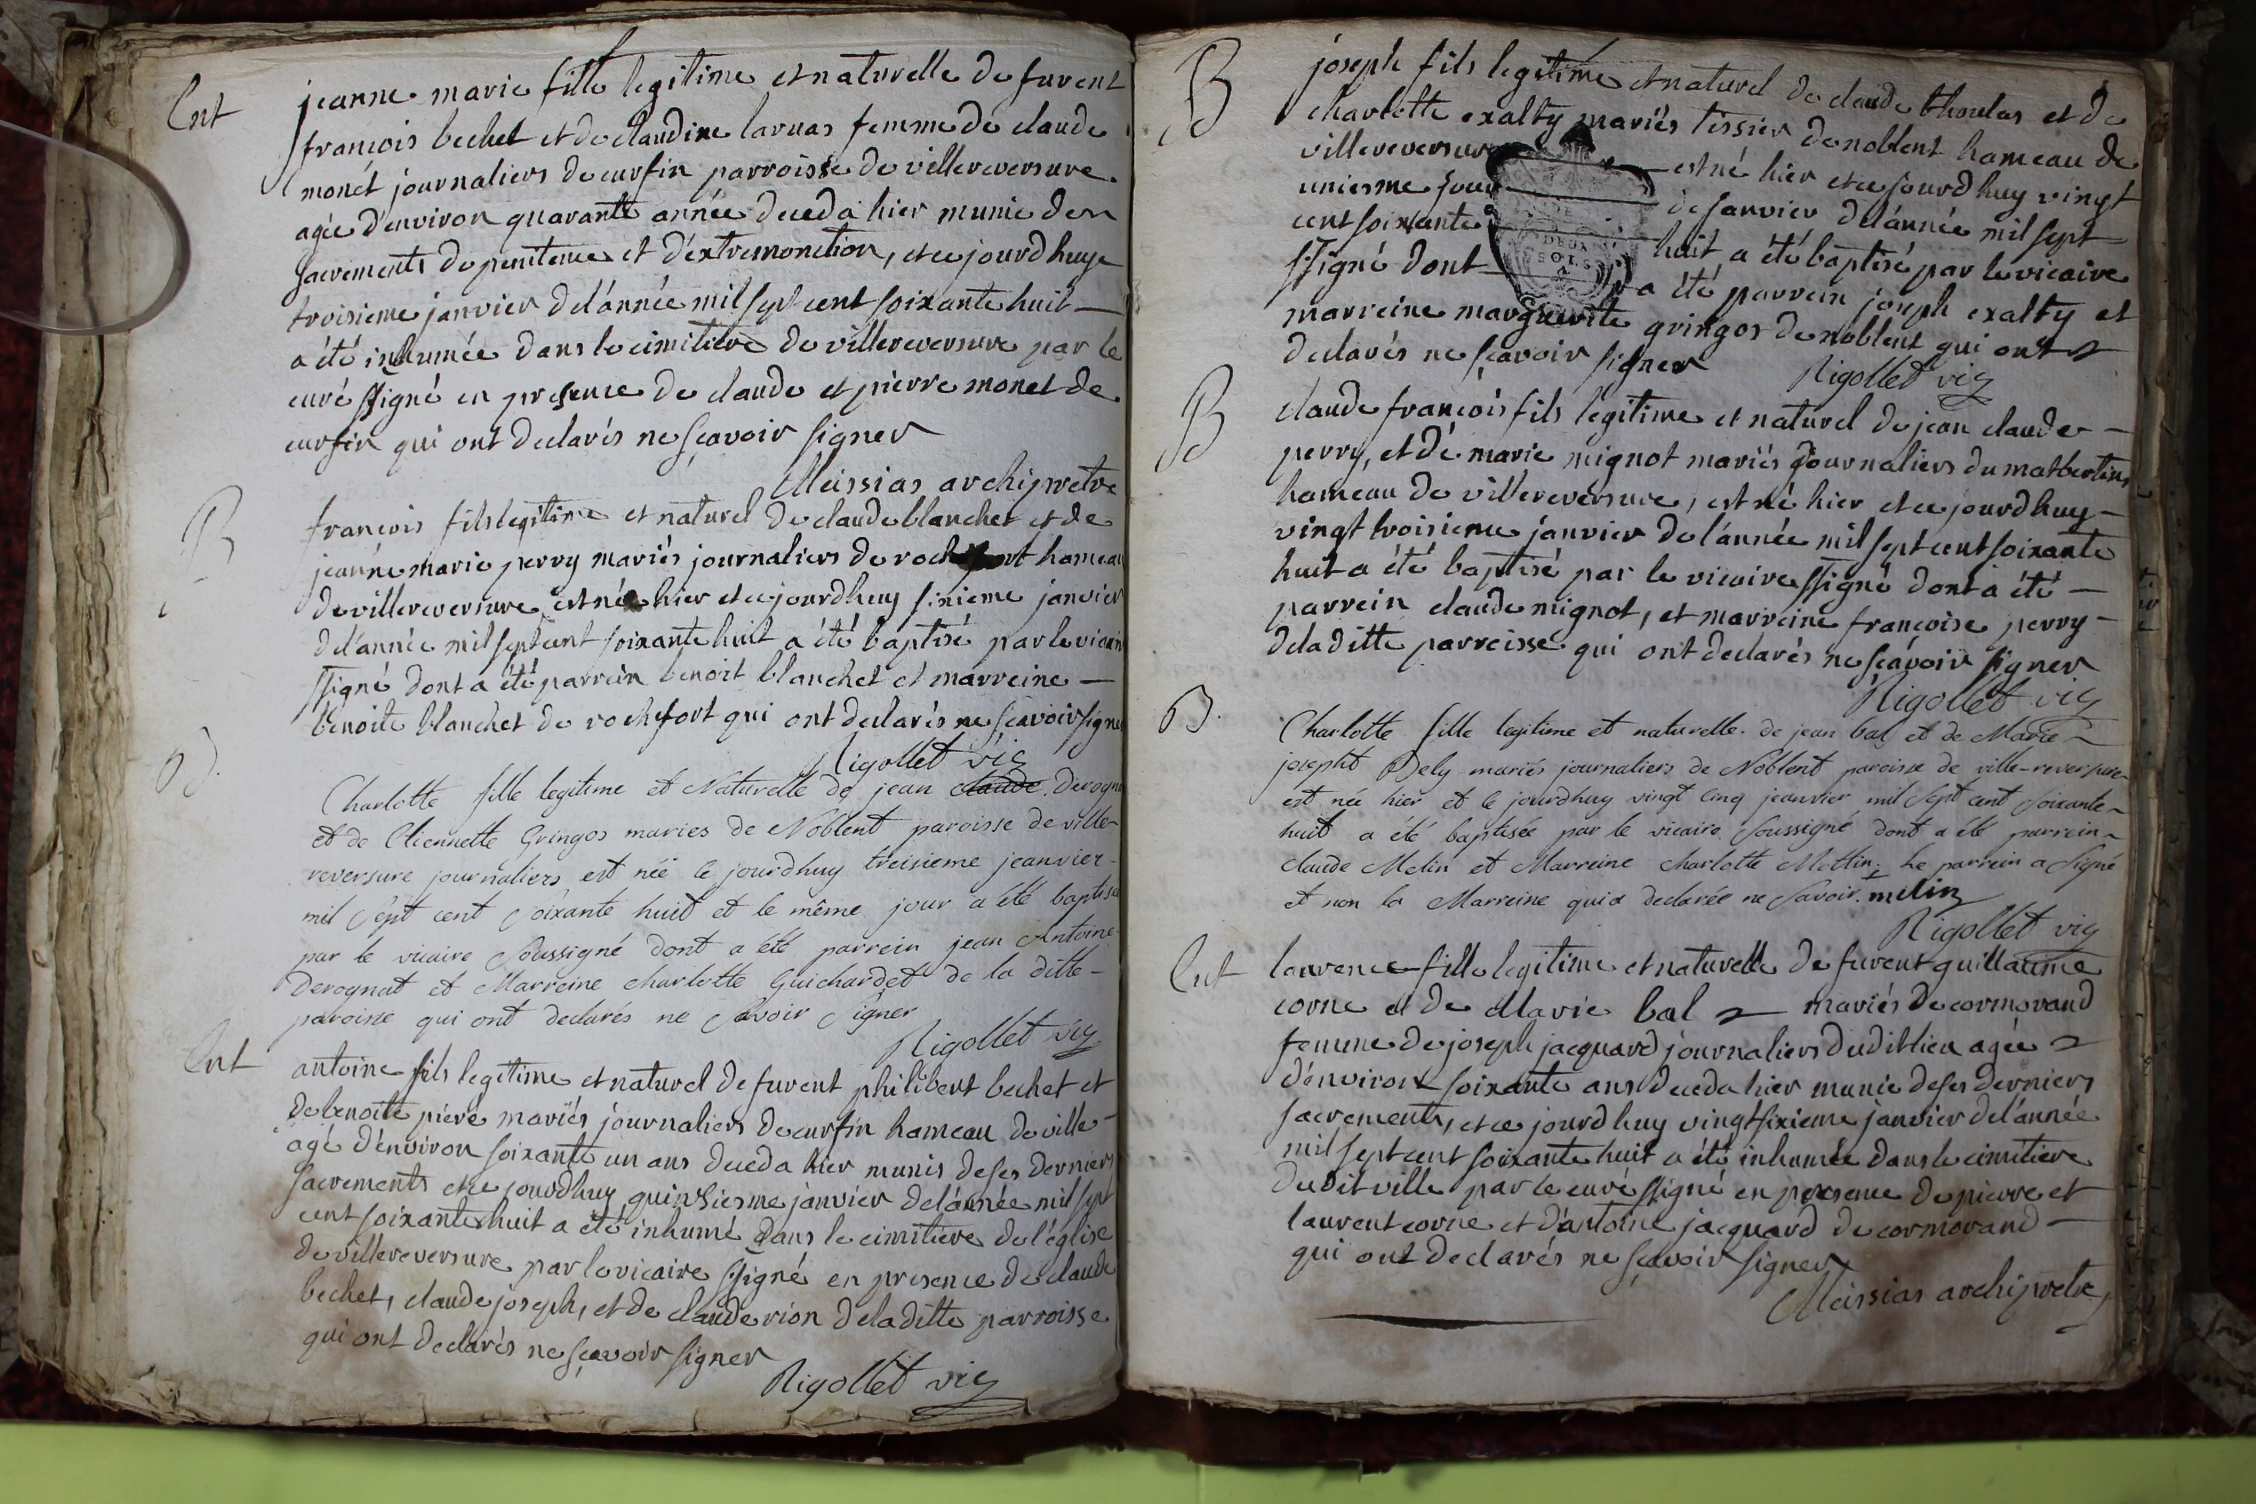 Ent
jeanne marie fille legitime et naturelle de furent
francois bechet et de claudine laruas femme de claude
monét journaliers de curfin parroisse de villereversure
agée d'environ quarante année deceda hier munie des
sacrements de penitence et d'extremonction, et ce jourdhuy
troisieme janvier de l'année mil sept cent soixante huit
a été inhumée dans le cimitiere de villereversure par le
curé ssigné en presence de claude et pierre monet de
curfin qui ont declarés ne sçavoir signer
Meissias archipretre
B
francois fils legitime et naturel de claude blanchet et de
jeanne marie perry mariés journaliers de rochefort hameau
de villereversure est né hier et ce jourdhuy sixieme janvier
de l'année mil sept cent soixante huit a été baptisé par le vicaire
ssigné dont a été parrein benoit blanchet et marreine
benoite blanchet de rochefort qui ont declarés ne sçavoir signer
Rigollet vic
B.
Charlotte fille legitime et Naturelle de jean claude Derognat
et de Etiennette Gringos maries de Noblent paroisse de ville-
reversure journaliers est née ce jourdhuy treisieme jeanvier
mil Sept cent Soixante huit et le même jour a été baptisée
par le vicaire Soussigné dont a été parrein jean Antoine
Derognat et Marreine charlotte Guichardet de la ditte
paroisse qui ont declarés ne Savoir Signer
Rigollet vic
Ent
antoine fils legitime et naturel de furent philibert bechet et
de benoite piere mariés journaliers de curfin hameau de ville
agé d'environ soixante un ans deceda hier munis de ses derniers
sacrements et ce jourdhuy quinsiesme janvier de l'année mil sept
cent soixante huit a été inhumé dans le cimitiere de l'église
de villereversure par le vicaire ssigné en presence de claude
bechet, claude joseph, et de claude rion de la ditte parroisse
qui ont declarés ne sçavoir signer
Rigollet vic
B
joseph fils legitime et naturel de claude thoulas et de
charlotte exalty mariés tissier de noblent hameau de
villereversure est né hier et ce jourdhuy vingt
uniesme jour de janvier de l'année mil sept
cent soixante huit a été baptisé par le vicaire
ssigné dont a été parrein joseph exalty et
DEUX
SOLS
marreine marguerite gringos de noblent qui ont
declarés ne sçavoir signer
Rigollet vic
B
claude françois fils legitime et naturel de jean claude
perry, et de marie mignot mariés journaliers du matbertin
hameau de villereversure, est né hier et ce jourdhuy
vingt troisieme janvier de l'année mil sept cent soixante
huit a été baptisé par le vicaire ssigné dont a été
parrein claude mignot, et marreine françoise perry
de la ditte parroisse qui ont declarés ne sçavoir signer
Rigollet vic
B.
Charlotte fille legitime et naturelle de jean bal et de Marie
josepht Dely mariés journaliers de Noblent paroisse de ville-reversure
est née hier et ce jourdhuy vingt cinq jeanvier mil Sept cent Soixante
huit a été baptisée par le vicaire Soussigné dont a été parrein
claude Melin et Marreine charlotte Mettlin. Le parrein a Signé
et non la Marreine qui a declarée ne Savoir. melin
Rigollet vic
Ent
laurence fille legitime et naturelle de furent guillaume
corne et de Marie bal mariés de cormorand
femme de joseph jacquard journaliers dudit lieu agée
d'environ soixante ans deceda hier munie de ses derniers
sacrements, et ce jourdhuy vingt sixieme janvier de l'année
mil sept cent soixante huit a été inhumée dans le cimitiere
dudit ville par le curé ssigné en presence de pierre et
laurent corne et d'antoine jacquard de cormorand
qui ont declarés ne sçavoir signer
Meissias archipretre